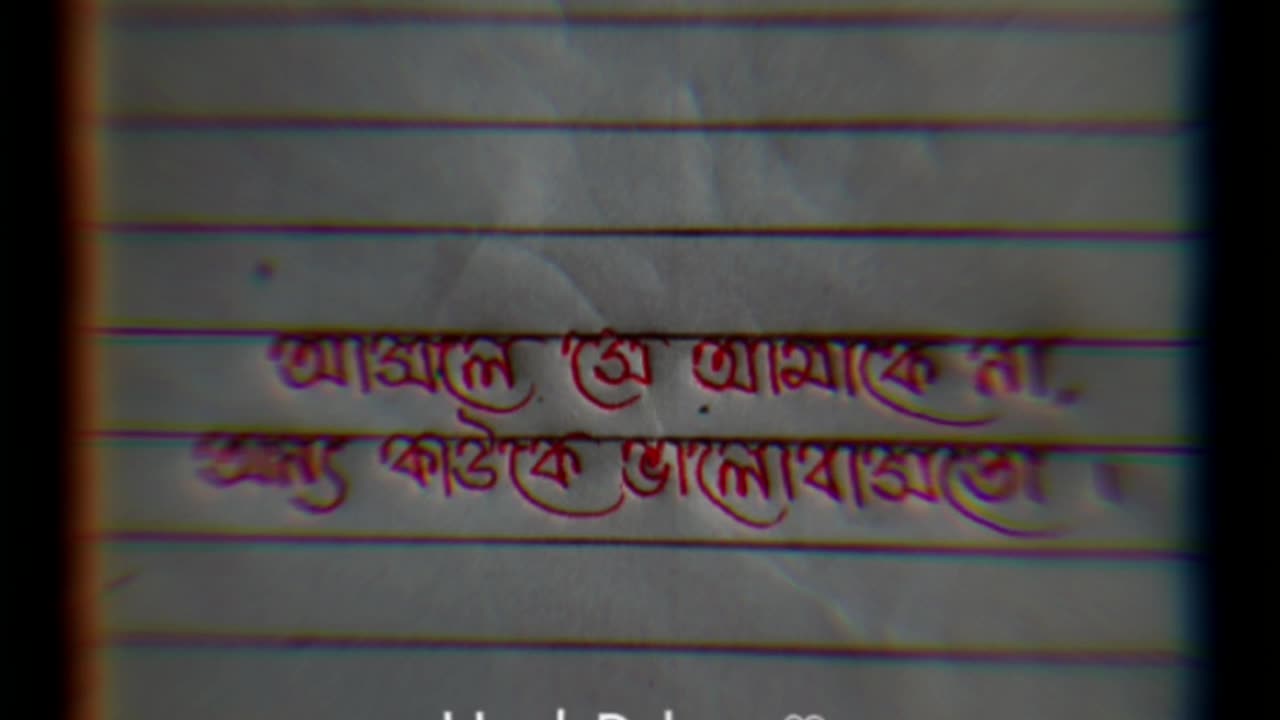 আসলে সে আমাকে না,
অন্য কাউকে ভালোবাসতো ।